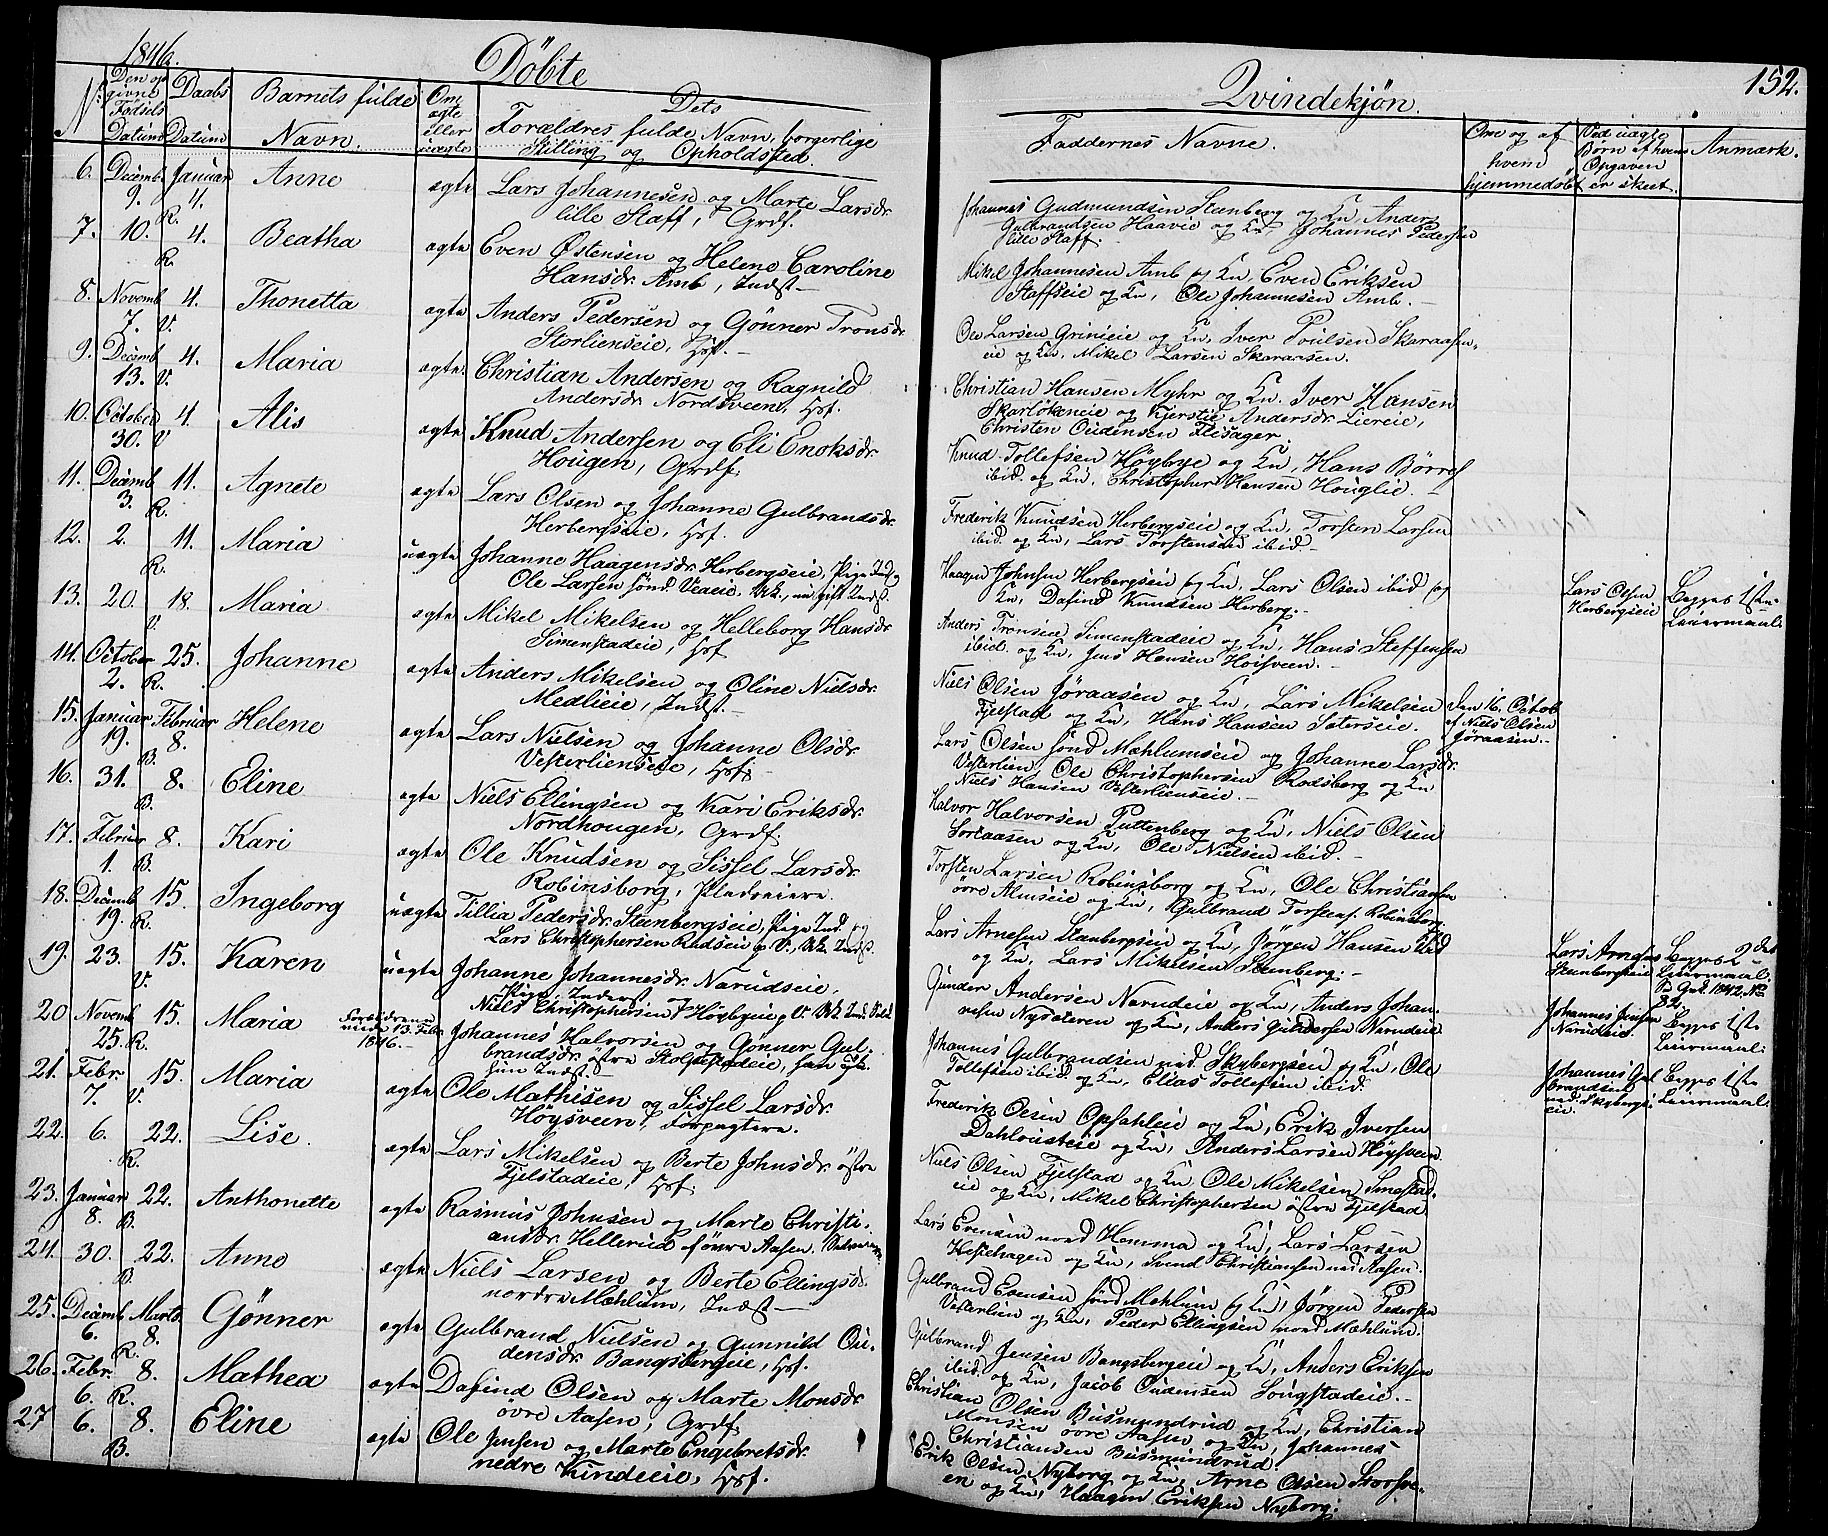 1846.
Döbte
Qvindekjön.
152.
No
Den op
givne
Fødsels
Datum
Daabs
Datum
Barnets fulde
Navn.
Om
ægte
eller
uægte
Dets
Forældres fulde Navn, borgerlige
Stilling og Opholdsted.
Faddernes Navne.
Om og af
hvem
hjemmedøbt
Ved uægte
Børn af hvem
Opgaven
er skeet.
Anmærk.
6. Decemb. 9. R. Januar 4. Anne ægte Lars Johannesen og Marte Larsdr.
lille Staff, Grdf.
Johannes Gudmundsen Stenberg og Kn, Anders
Gulbrandsen Haavie og Kn, Johannes Pedersen
lille Staff.
7. 10. R. 4. Beatha ægte Even Østensen og Helene Caroline
Hansdr. Amb, Indst.
Mikel Johannesen Amb og Kn, Even Eriksen
Staffseie og Kn, Ole Johannesen Amb.
8. Novemb 7. V. 4. Thonetta ægte Anders Pedersen og Gönner Tronsdr.
Storlienseie, Hsf.
Ole Larsen Grinieie og Kn, Iver Poulsen Skaraasen-
eie og Kn, Mikel Larsen Skaraasen.
9. Decemb 13. V. 4. Maria ægte Christian Andersen og Ragnild
Andersdr. Nordsveen, Hsf.
Christian Hansen Myhr og Kn. Iver Hansen
Skarløkeneie og Kjerstie Andersdr. Liereie,
Christen Oudensen Flisager.
10. October 30. V 4. Alis ægte Knud Andersen og Eli Enoksdr.
Hougen, Grdf.
Knud Tollefsen Höybye og Kn, Hans Börres
ibid. og Kn, Christopher Hansen Houglie.
11. Decemb 3. R. 11. Agnete ægte Lars Olsen og Johanne Gulbrandsdr.
Herbergseie, Hsf.
Frederik Knudsen Herbergseie og Kn, Torsten Larsen
ibid. og Kn, Lars Torstensen ibid.
12. 2. R. 11. Maria uægte Johanne Haagensdr. Herbergseie, Pige Ind. og
Ole Larsen sönd. Veaeie, Uk., nu gift Indst.
Haagen Johnsen Herbergseie og Kn, Lars Olsen ibid og
Kn, Dafind Knudsen Herberg.
Lars Olsen
Herbergseie
Begges 1ste
Leiermaal.
13. 20. V. 18. Maria ægte Mikel Mikelsen og Helleborg Hansdr.
Simenstadeie, Hsf
Anders Tronsen Simenstadeie og Kn, Hans Steffensen
ibid. og Kn, Jens Hansen Hoisveen.
14. October 2. R. 25. Johanne ægte Anders Mikelsen og Oline Nielsdr.
Medlieie, Indst.
Niels Olsen Jöraasen og Kn, Lars Mikelsen
Fjelstad og Kn, Hans Hansen Soterseie.
Den 16. Octob
af Niels Olsen
Jöraasen.
15. Januar 19. B. Februar 8. Helene ægte Lars Nielsen og Johanne Olsdr.
Vesterlienseie, Hsf.
Lars Olsen sönd Mæhlumseie og Johanne Larsdr.
Vesterlien, Ole Christophersen Rodsberg og Kn
Niels Hansen Vesterlienseie.
16. 31. B. 8. Eline ægte Niels Ellingsen og Kari Eriksdr.
Nordhougen, Grdf.
Halvor Halvorsen Puttenberg og Kn, Niels Olsen
Joraasen og Kn, Ole Nielsen ibid.
17. Februar 1. B. 8. Kari ægte Ole Knudsen og Sissel Larsdr.
Robinsborg, Pladseiere.
Torsten Larsen Robinsborg og Kn, Ole Christiansen
övre Almseie og Kn, Gulbrand Torstens. Robinsborg.
18. Decemb 19. R. 15. Ingeborg uægte Tillia Pedersdr. Stenbergseie, Pige Ind. og
Lars Christophersen Rudseie p V., Uk. Indst.
Lars Arnesen Stenbergseie og Kn, Jörgen Hansen ibid
og Kn, Lars Mikelsen Stenberg.
Lars Arnesen
Stenbergseie
Begges 2det
Leiermaal.
19. 23. V. 15. Karen uægte Johanne Johannesdr. Narudseie,
Pige Inderst og
Niels Christophersen Höybyeie p V. Uk. Ind.
Gunder Andersen Narudeie og Kn, Anders Johan-
nesen Nysateren og Kn, Anders Gundersen Narudeie
Johannes Jensen
Narudeie.
Begges 1ste
Leiermaal.
20 Novemb 25. R. 15. Maria Forældrene
viede 13. Febr.
1846. Johannes Halvorsen og Gönner Gul-
brandsdr. östre Stolpestadeie,
Johannes Gulbrandsen ned. Skybergseie og Kn, Ole
Tollefsen ibid og Kn, Elias Tollefsen ibid.
Johannes Gul
brandsen
ned. Skybergs
eie.
Begges 1ste
Leiermaal.
21. Febr. 7. V. 15. Maria ægte Ole Mathisen og Sissel Larsdr.
Höysveen, Forpagtere.
Frederik Olsen Opsahleie og Kn, Erik Iversen
Dahlousteie og Kn, Anders Larsen Höysveen
22. 6. R. 22. Lise. ægte Lars Mikelsen og Berte Johnsdr. östre
Fjelstadeie, Hsf
Niels Olsen Fjelstad og Kn, Ole Mikelsen Smestad-
eie og Kn, Mikel Christophersen östre Fjelstad
23. Januar 8. B. 22. Anthonette ægte Rasmus Johnsen og Marte Christi-
ansdr. Hellerud
Lars Evensen nord Hemma og Kn, Lars Larsen
Hestehagen og Kn, Svend Christiansen ned Aasen.
24. 30. B. 22. Anne ægte Niels Larsen og Berte Ellingsdr.
nordre Mæhlum, Indst
Gulbrand Evensen sönd Mæhlum og Kn, Jörgen Pedersen
Vesterlien og Kn, Peder Ellingsen nord Mæhlum.
25. Decemb 6. R. Marts 8. Gönner ægte Gulbrand Nielsen og Gunnild Ou-
densdr. Bangsbergeie, Hsf.
Gulbrand Jensen Bangsbergeie og Kn, Anders Eriksen
ibid. og Kn, Jacob Oudensen Sougstadeie.
26. Febr. 6. R. 8. Mathea ægte Dafind Olsen og Marte Monsdr.
övre Aasen, Grdf
Christian Olsen Busmundrud og Kn, Christian
Monsen övre Aasen og Kn, Johannes
Christiansen Busmundrud.
27 6. B. 8. Eline ægte Ole Jensen og Marte Engebretsdr.
nedre Kindeeie, Hsf.
Erik Olsen Nyborg og Kn, Arne Olsen Storsve-
en og Kn, Haagen Eriksen Nyborg.